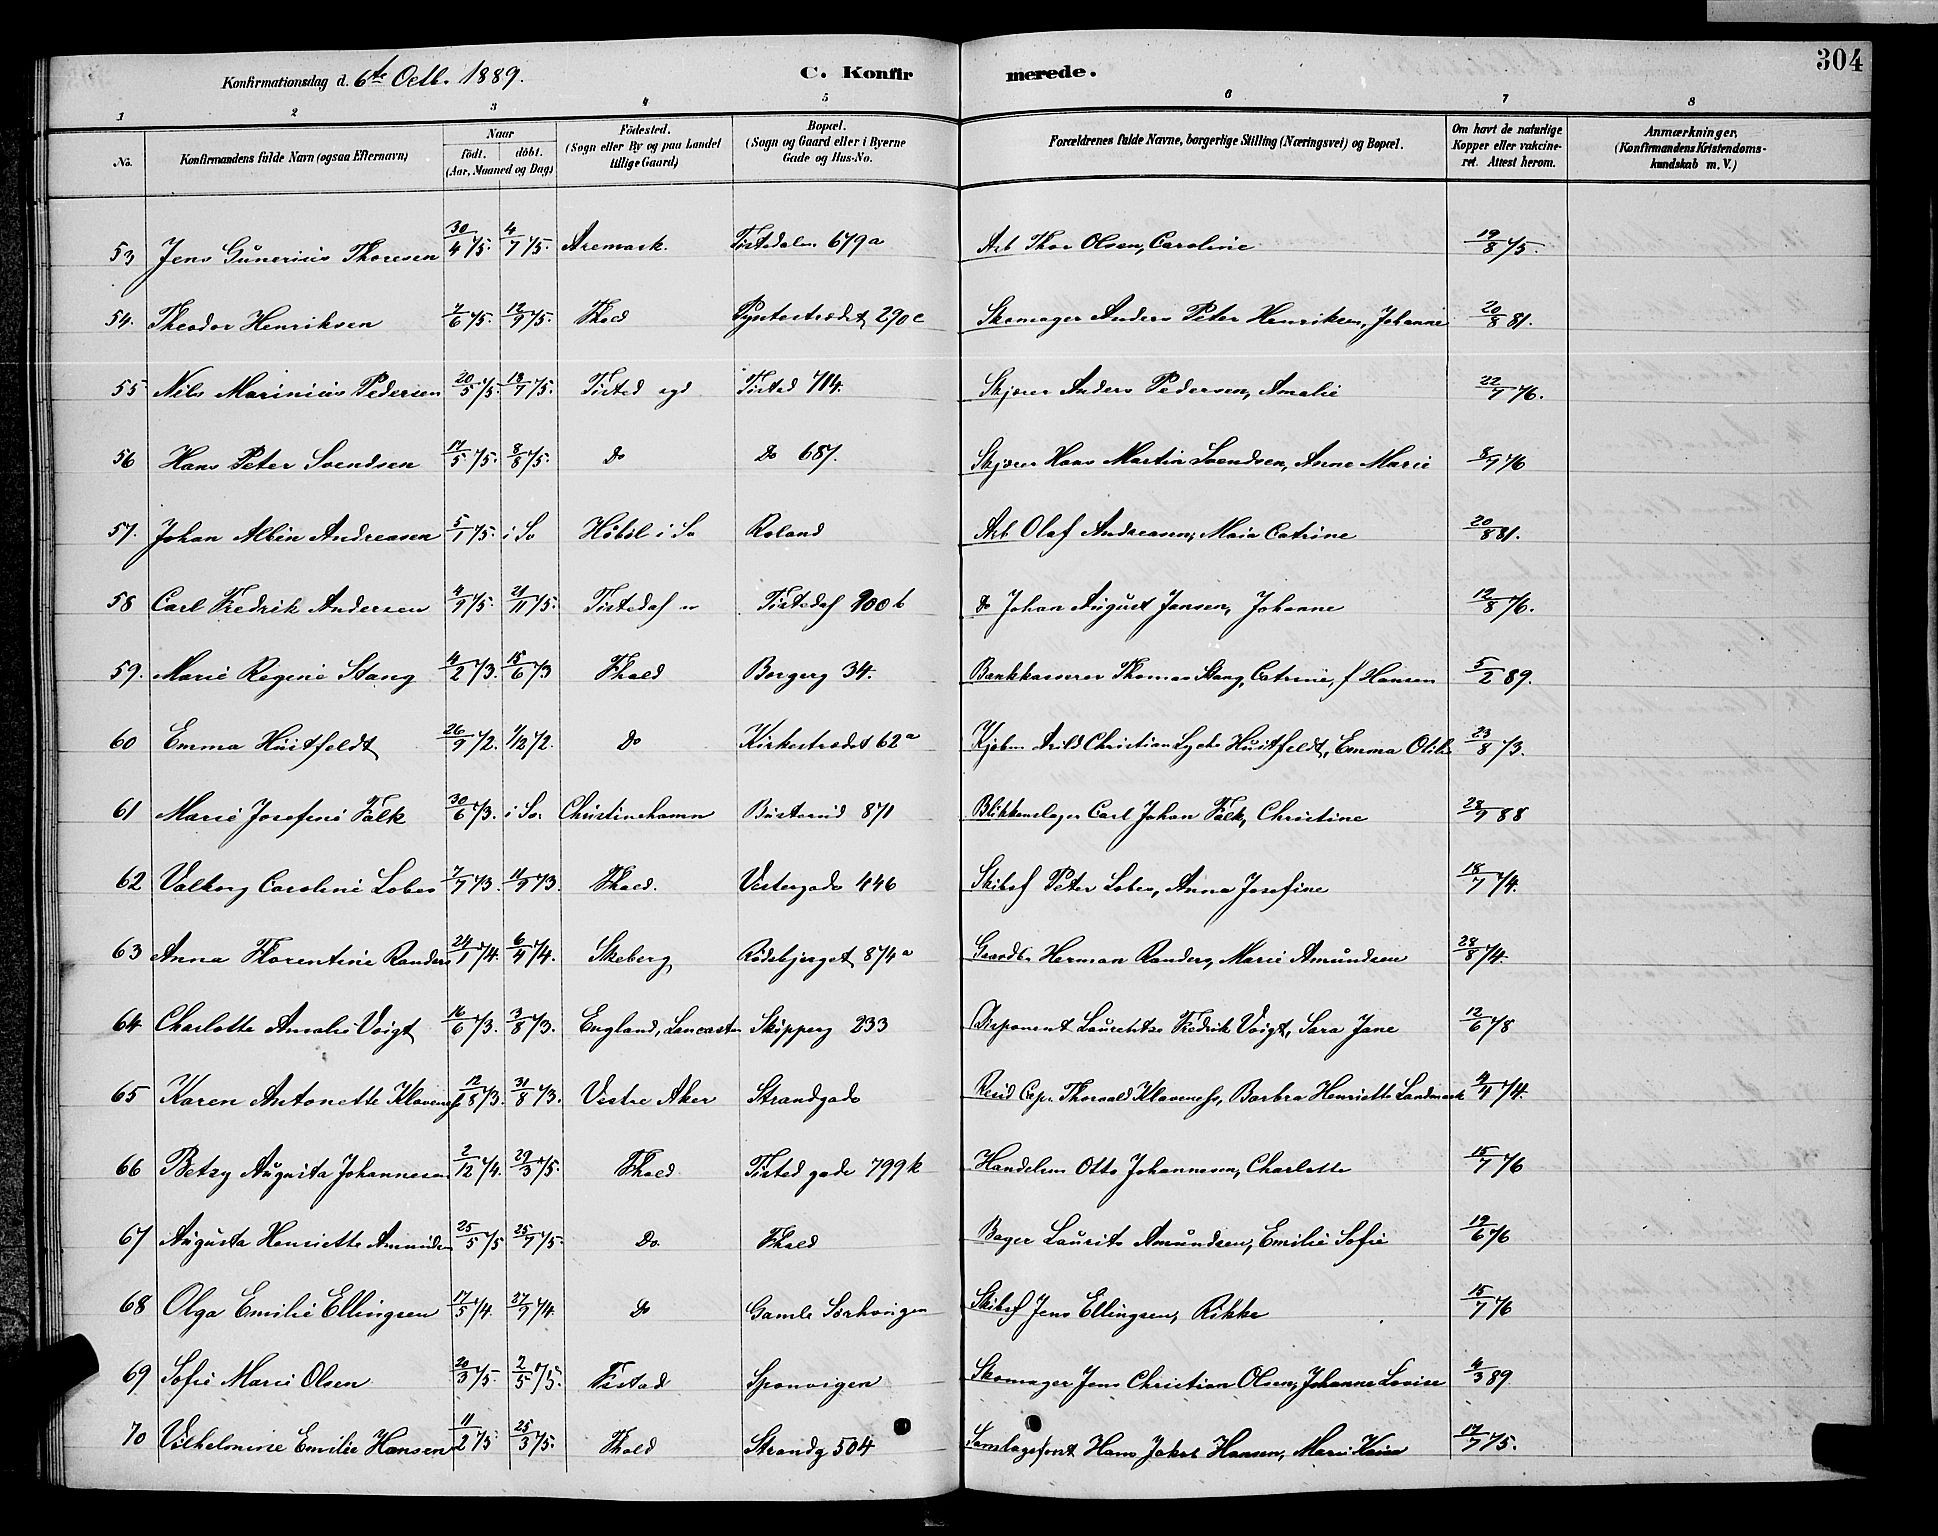 304
Konfirmationsdag d. 6te Octb. 1889. C. Konfirmerede.
1 2 3 4 5 6 7 8
No. Konfirmandens fulde Navn (ogsaa Efternavn) Naar födt. döbt. (Aar, Maaned og Dag) Födested. (Sogn eller By og paa Landet tillige Gaard) Bopæl. (Sogn og Gaard eller i Byerne Gade og Hus-No. Forældrenes fulde Navne, borgerlige Stilling (Næringsvei) og Bopæl. Om havt de naturlige Kopper eller vakcineret. Attest herom. Anmærkninger. (Konfirmandens Kristendomskundskab m. V.)
53 Jens Gunerius Thoresen 30/4 75. 4/7 75. Aremark. Tistedalen 679a Arb Thor Olsen, Caroline 19/8 75.
54. Theodor Henriksen 7/6 75. 12/9 75. Fhald Pyntestrædet 290c Skomager Anders Peter Henriksen, Johanne 20/8 81.
55 Nils Marinius Pedersen 20/5 75. 18/7 75. Tisted Tisted 714. Skjærer Anders Pedersen, Amalie 22/7 76.
56 Hans Peter Svendsen 17/5 75. 8/8 75. Do Do 687. Skjærer Hans Martin Svendsen, Anne Marie 8/9 76
57. Johan Albin Andreasen 5/1 75. i So Höböl i So Roland Arb Olaf Andreasen, Maia Catrine 20/8 81.
58 Carl Fredrik Andersen 4/9 75. 21/11 75. Tistedal Tistedal 900b Do Johan August Jansen, Johanne 12/8 76.
59. Marie Regine Stang 4/2 73. 15/6 73 Fhald Borgerg 34. Bankkasserer Thomas Stang, Catrine, f Hansen 5/2 89.
60 Emma Huitfeldt 26/9 72. 1/12 72. Do Kirkestrædet 62a Kjøbm Arild Christian Lyche Huitfeldt, Emma Otilie 23/8 73.
61 Marie Josefine Falk 30/6 73. i So. Christinehamn Busterud 871 Blikkenslager Carl Johan Falk, Christine 28/9 88
62 Valborg Caroline Lobes 7/7 73. 11/9 73. Fhald. Vestergade 446 Skibsf Peter Lobes, Anna Josefine 18/7 74.
63 Anna Florentine Randers 24/1 74. 6/4 74. Skeberg Rödsbjerget 874a Gaardbr Herman Randers, Marie Amundsen 28/8 74.
64 Charlotte Amalie Voigt 16/6 73. 3/8 73. England, Lancaster Skipperg 233 Disponent Laurentze Fredrik Voigt, Sara Jane 12/6 78
65 Karen Antonette Klaveness 12/8 73. 31/8 73. Vestre Aker Strandgade Resid Cap. Thorvald Klaveness, Barbra Henriette Landmark 4/4 74.
66 Betzy Augusta Johannesen 2/12 74. 29/3 75. Fhald Tistedgade 799k Handelsm Otto Johannesen, Charlotte 15/7 76
67 Augusta Henriette Amundsen 25/5 75 25/7 75. Do. Fhald Bager Laurits Amundsen, Emilie Sofie 19/6 76
68 Olga Emilie Ellingsen 17/5 74. 27/9 74. Do Gamle Sørhavigen Skibsf Jens Ellingsen, Rikke 15/7 76
69 Sofie Marie Olsen 20/3 75. 2/5 75. Tistad Sponvigen Skomager Jens Christian Olsen, Johanne Lovise 4/3 89
70 Vilhelmine Emilie Hansen 11/2 75 25/3 75. Fhald Strandg 504 Hans Jakob Hansen, Marie Kaisa 17/7 75.